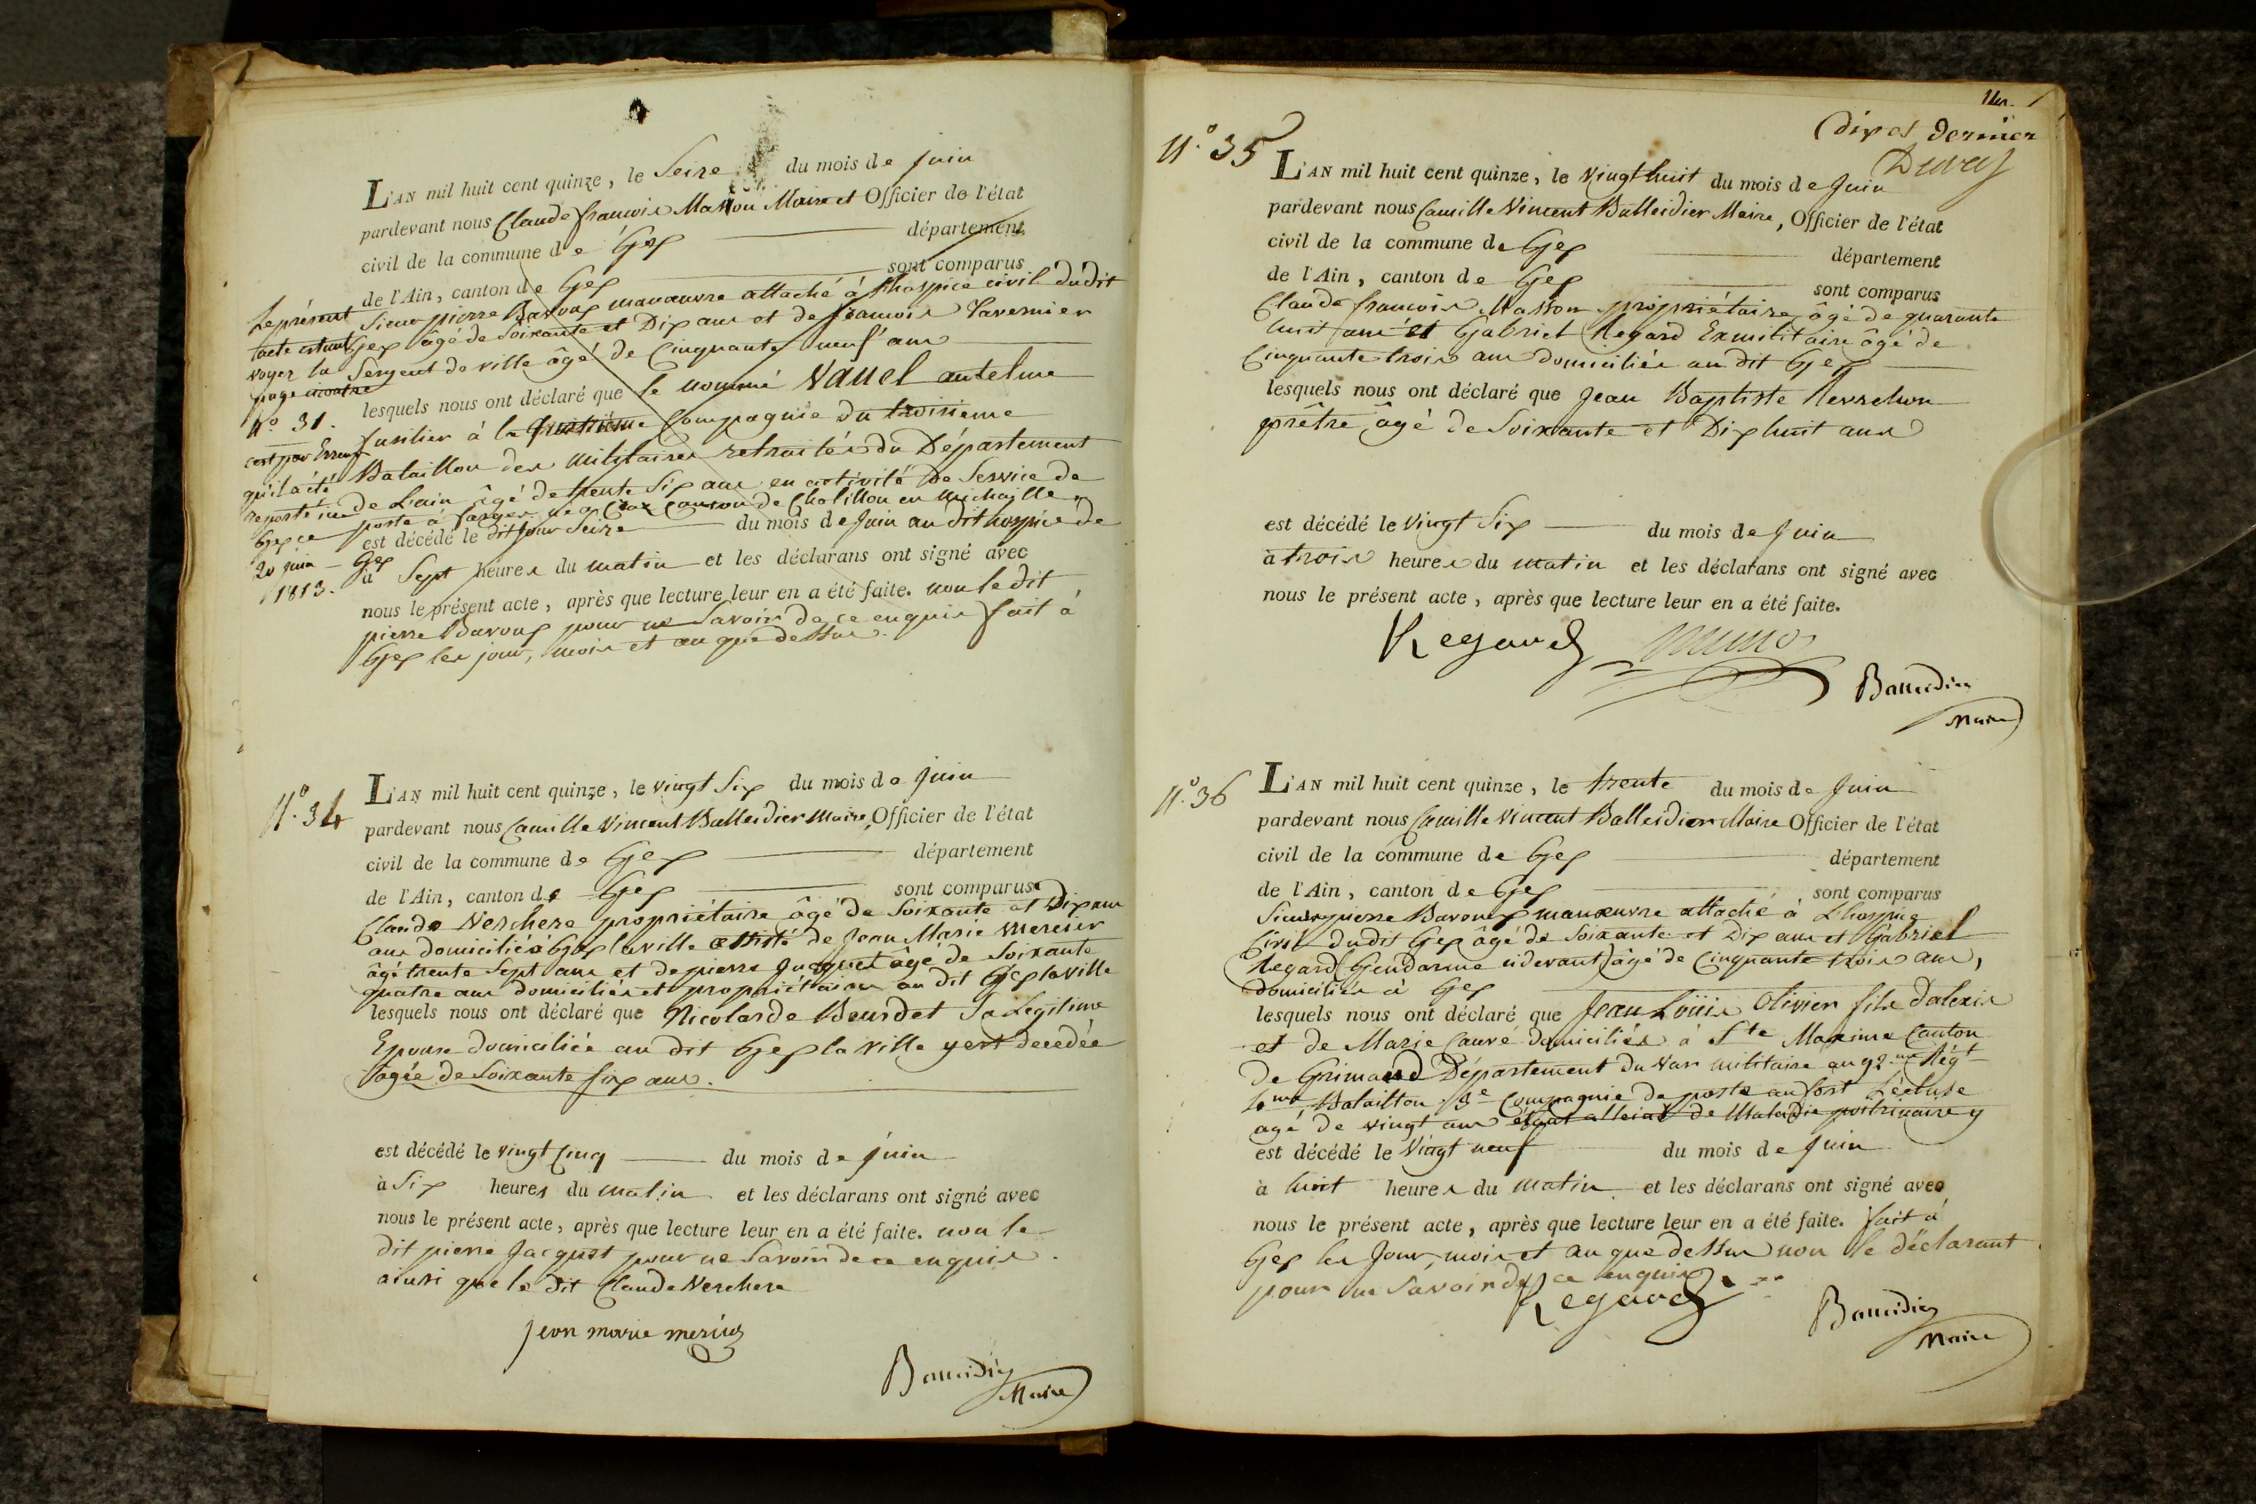 L'AN mil huit cent quinze, le Seize du mois de Juin
pardevant nous Claude françois Masson Maire et Officier de l'état
civil de la commune de Gex département
de l'Ain, canton de Gex sont comparus
Sieur pierre Baroux manœuvre attaché à l'hospice civil dudit
Gex âgé de Soixante et Dix ans et de françois Tavernier
Sergent de ville âgé de Cinquante neuf ans
lesquels nous ont déclaré que le nommé Vauel antelme
fusilier à la Compagnie du troisieme
Bataillon des Militaires retraités du Département
de Lain âgé de trente Six ans en activité de Service de
poste à farges Canton de Chatillon en Michaille,
est décédé le dit Jour Seize du mois de Juin au dit hospice de
Gex
à Sept heures du matin et les déclarans ont signé avec
nous le présent acte, après que lecture leur en a été faite. non le dit
pierre Baroux pour ne Savoir de ce enquis fait à
Gex les jour, mois et an que dessus.
Le présent
acte
voyez la
page
N.o 31.
c'est par Erreur
qu'il a été
reporté
Gex ce
20 juin
N.o 34
L'AN mil huit cent quinze, le vingt Six du mois de Juin
pardevant nous Camille Vincent Balleidier Maire, Officier de l'état
civil de la commune de Gex département
de l'Ain, canton de Gex sont comparus
Claude Verchere propriétaire âgé de Soixante et Dix ans
ans domicilié à Gex la ville assisté de Jean Marie Mercier
âgé trente Sept ans et de pierre Jacquet âgé de Soixante
quatre ans domiciliés et propriétaires au dit Gex la ville
lesquels nous ont déclaré que Nicolarde Bourdet Sa Légitime
Epouse domiciliée au dit Gex la Ville y est decedée
agée de Soixante six ans.
est décédé le vingt Cinq du mois de Juin
à Six heures du matin et les déclarans ont signé avec
nous le présent acte, après que lecture leur en a été faite. non le
dit pierre Jacquet pour ne Savoir de ce enquis
ainsi que le dit Claude Verchere
jean marie mercier
Balleidier
Maire
dix et dernier
N.o 35
L'AN mil huit cent quinze, le Vingt huit du mois de Juin
pardevant nous Camille Vincent Balleidier Maire, Officier de l'état
civil de la commune de Gex département
de l'Ain, canton de Gex sont comparus
Claude françois Masson propriétaire âgé de quarante
huit ans et Gabriel Regard Exmilitaire âgé de
Cinquante trois ans domiciliés au dit Gex
lesquels nous ont déclaré que Jean Baptiste
prêtre, âgé de Soixante et Dix huit ans
est décédé le Vingt Six du mois de Juin
à trois heures du matin et les déclarans ont signé avec
nous le présent acte, après que lecture leur en a été faite.
Regard
Balleidier
Maire
N.o 36
L'AN mil huit cent quinze, le trente du mois de Juin
pardevant nous Camille Vincent Balleidier Maire Officier de l'état
civil de la commune de Gex département
de l'Ain, canton de Gex sont comparus
Sieurs pierre Baroux manœuvre attaché à Lhospice
Civil dudit Gex âgé de Soixante et Dix ans et Gabriel
Regard (Gendarme cidevant) âgé de Cinquante trois ans,
domiciliés à Gex
lesquels nous ont déclaré que Jean Loüis Olivier fils Dalexis
et de Marie Cauvé domiciliés à Ste Maxime Canton
de Grimaud Département du Var militaire au 92.me Régt
Bataillon 3e Compagnie de poste au fort Lécluse
agé de vingt ans étant atteint de Maladie poitrinaire y
est décédé le Vingt neuf du mois de Juin
à huit heures du matin et les déclarans ont signé avec
nous le présent acte, après que lecture leur en a été faite. fait à
Gex les Jour, mois et an que dessus non le déclarant
pour ne Savoir de ce enquis
Regard
Balleidier
Maire